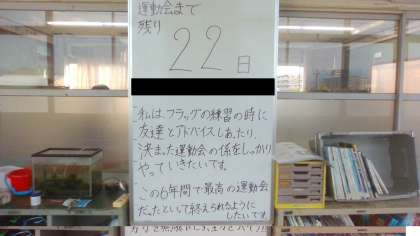 運動会まで
残り
22日
私は、フラッグの練習の時に
友達とアドバイスしあったり、
決まった運動会の係をしっかり
やっていきたいです。
この6年間で最高の運動会
だったといって終えられるように
したいです